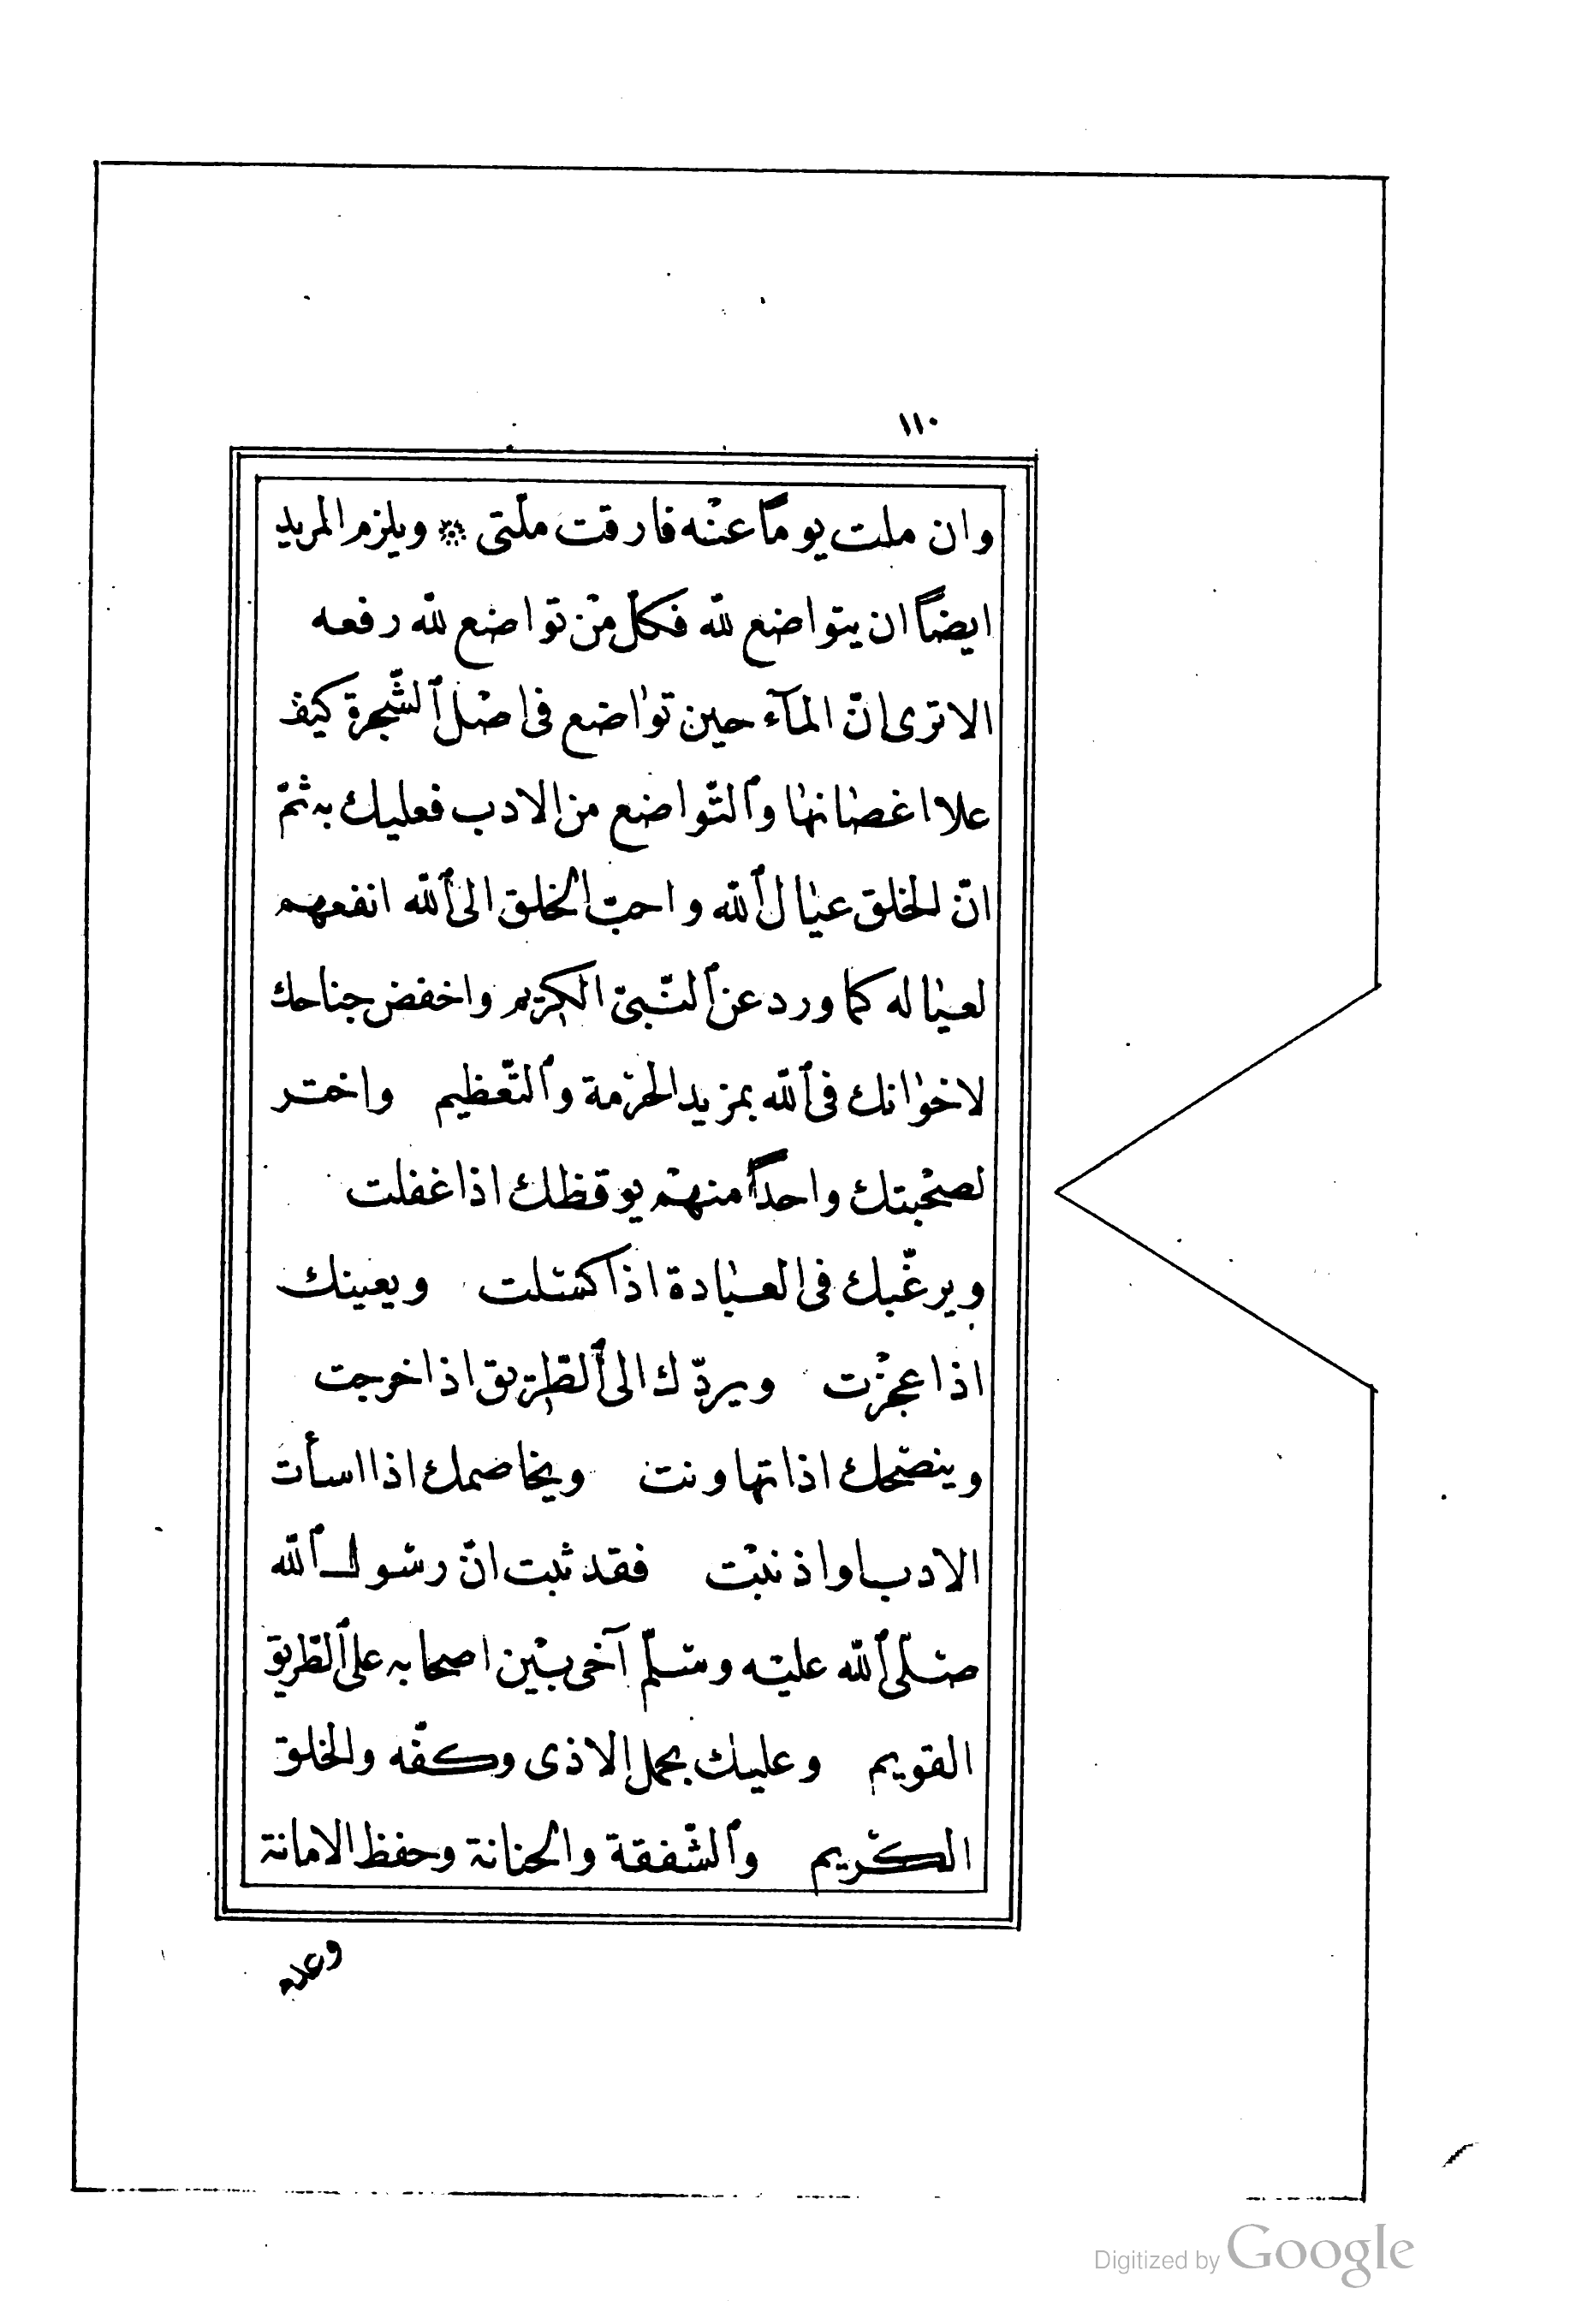 ١١٠
وان ملت يوماً عنْه فارقت ملّتى ۞ ويلزم المريد
ايضاً ان يتواضع للّه فكلّ منْ تواضع للّه رفعه
الا ترى انّ المآء حين تواضع فى اصْل ٱلشّجرة كيف
علا اغصانها وٱلتّواضع من الادب فعليك به ثمّ
انّ الخلق عيال ٱللّه واحبّ الخلق الى ٱللّه انفعهم
لعياله كما ورد عن ٱلنّبىّ الكريم واخفض جناحك
لاخوانك فى ٱللّه بمزيد الحرْمة وٱلتّعظيم واختر
لصحْبتك واحداً منهمْ يوقظك اذا غفلت
ويرغّبك فى العبادة اذا كسلت ويعينك
اذا عجزْت ويردّك الى ٱلطّريق اذا خرجت
وينصحك اذا تهاونت ويخاصمك اذا اسأت
الادب او اذنبْت فقد ثبت انّ رسول ٱللّه
صلّى ٱللّه عليْه وسلّم آخى بيْن اصحابه على ٱلطّريق
القويم وعليك بحمل الاذى وكفّه والخلق
الكريم وٱلشّفقة والحنانة وحفظ الامانة
Digitized by Google